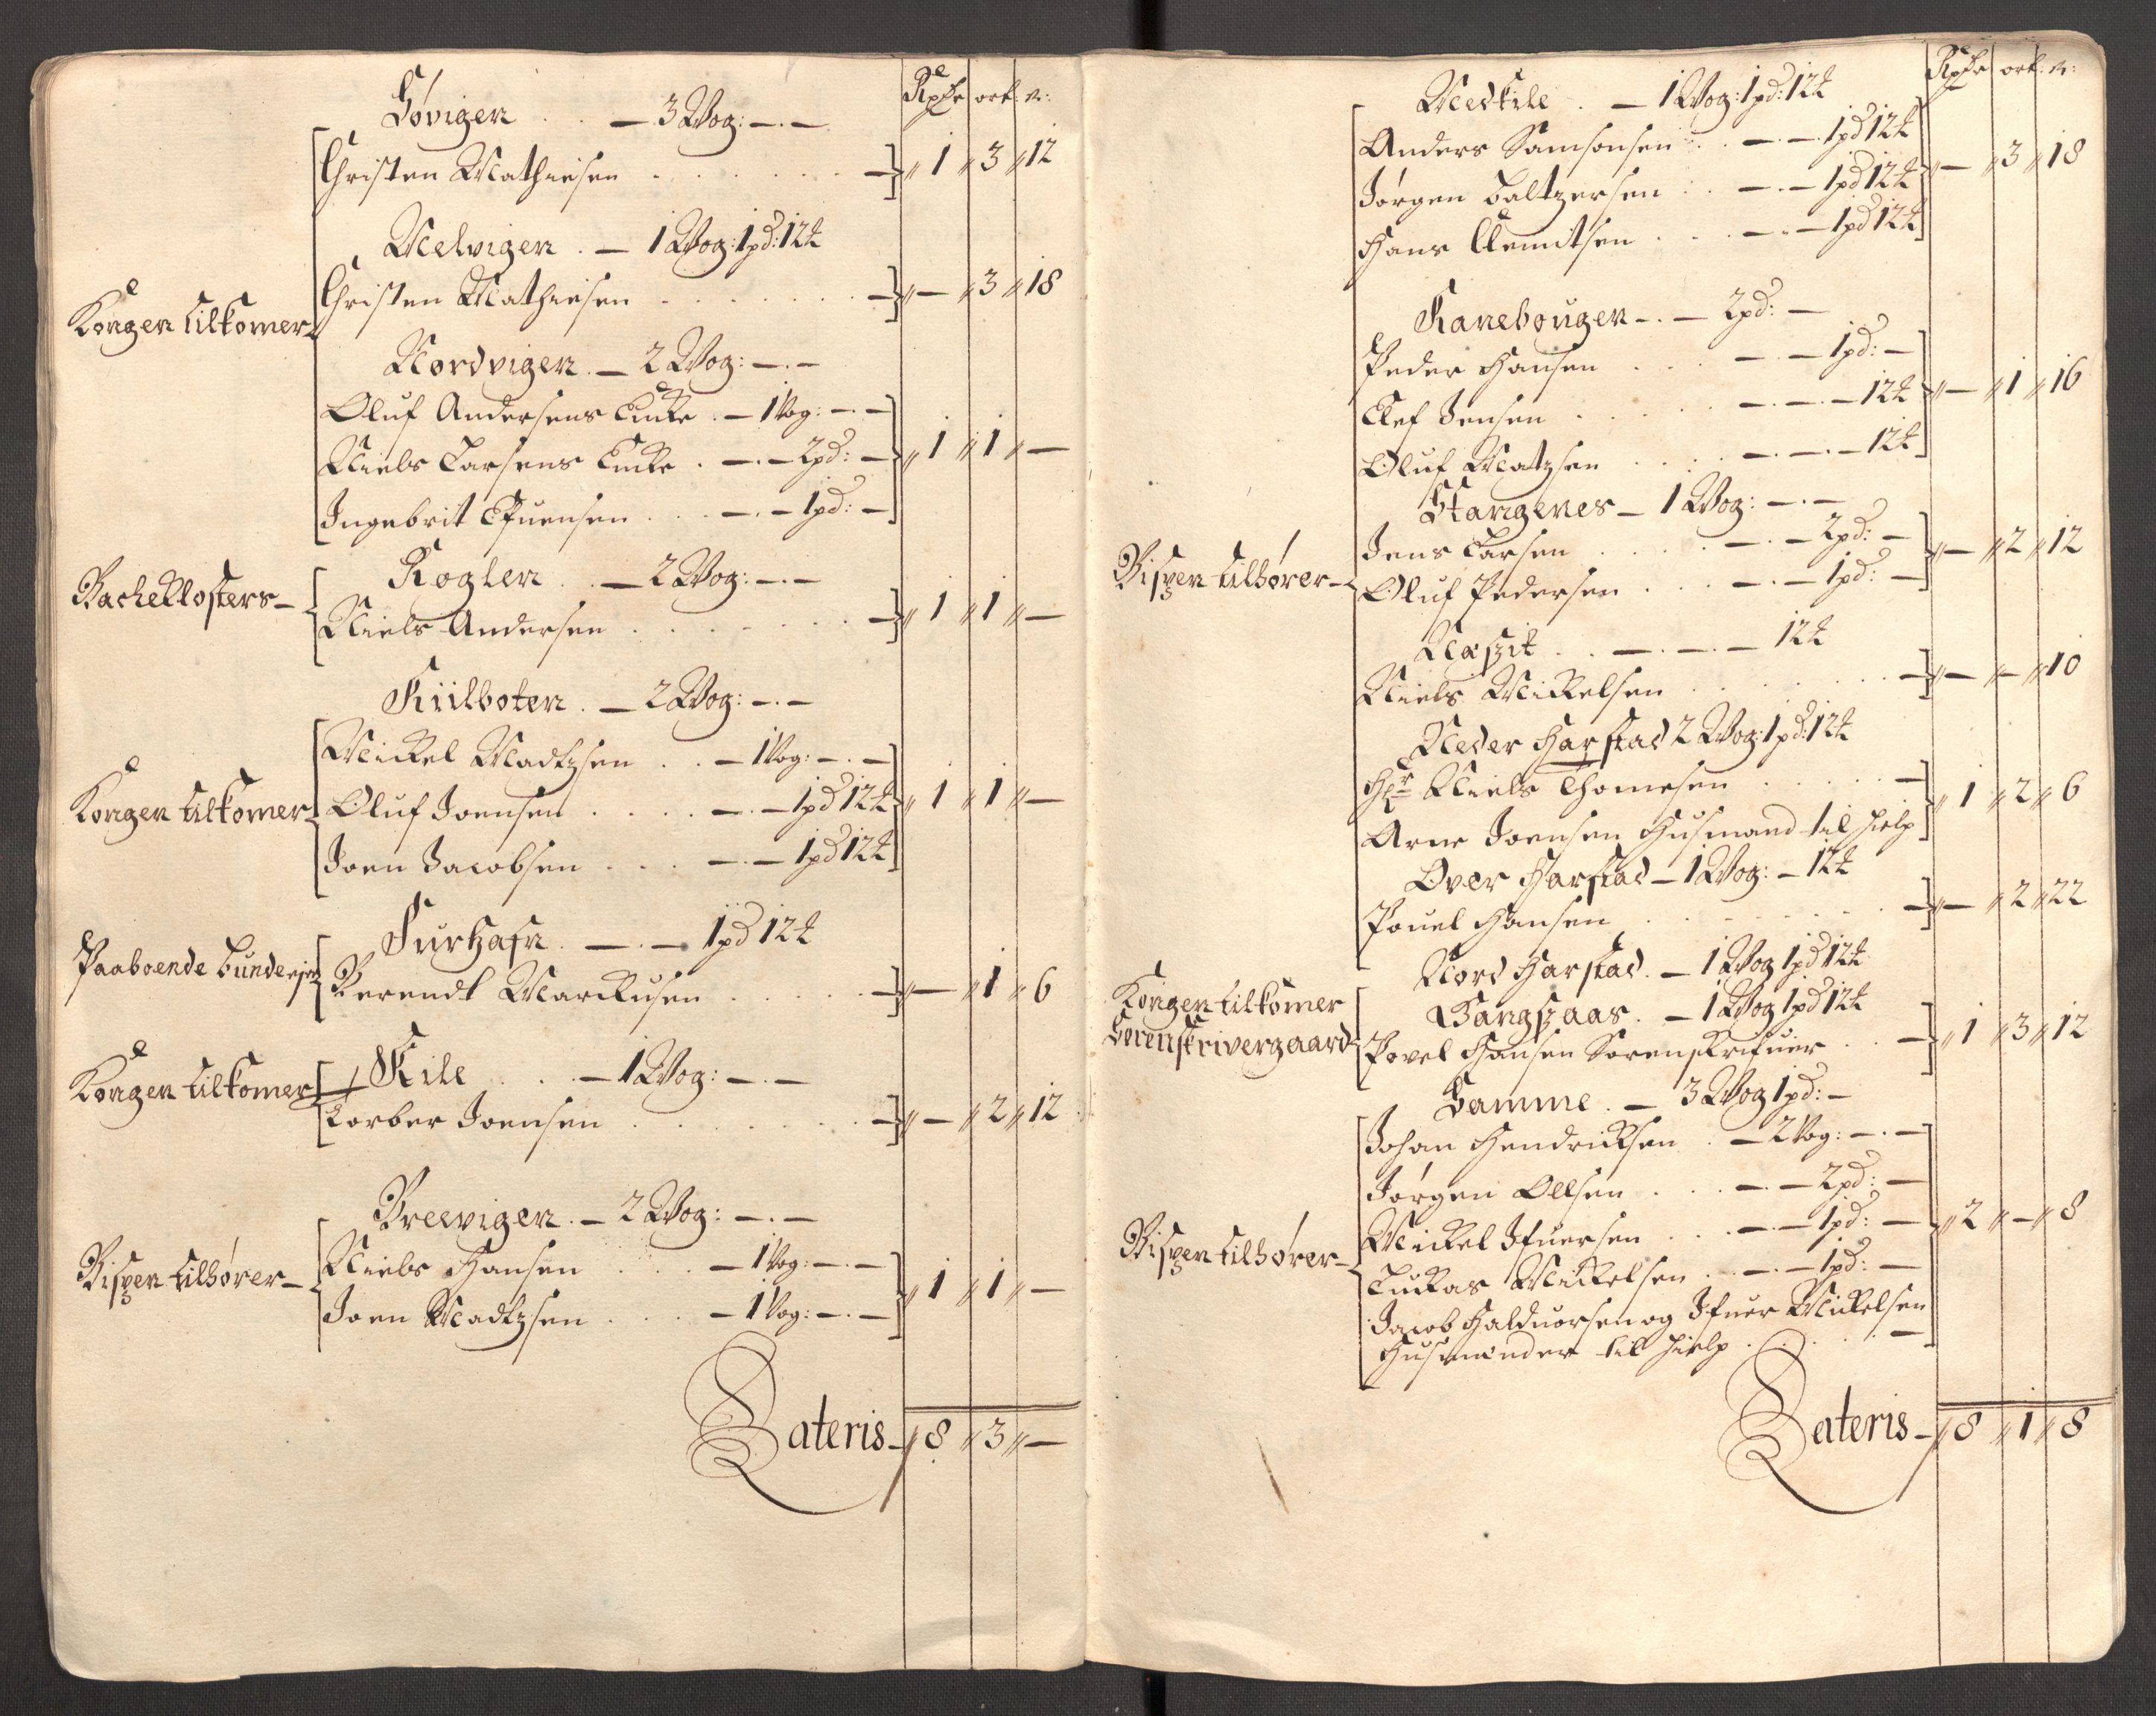 Rixdr ort. s:
Søvigen . . — 3 Wog: — . —
Christen Mathiesen . . . . . . — „ 1 „ 3 „ 12
Melvigen . — 1 Wog: 1 pd: 12 ℔
Kongen tilkomer
Christen Mathiesen . . . . . . — „ — „ 3 „ 18
Nordvigen . — 2 Wog: — . —
Oluf Andersens Encke . — 1 Vog: — . —
Niels Larsens Encke . — . — 2 pd: — „ 1 „ 1 „ —
Ingebrit Efuensen . . — . — 1 pd: —
Backeklosters —
Rogler . . — 2 Wog: — . —
Niels Andersen . . . . . . — „ 1 „ 1 „ —
Kiilboten . — 2 Wog: — . —
Mickel Madtzsen . . — 1 Vog: — . —
Kongen tilkomer
Oluf Joensen . . . . — . — 1 pd 12 ℔ „ 1 „ 1 „ —
Joen Jacobsen . . . — . — 1 pd 12 ℔
Furhafn . — . — 1 pd 12 ℔
Paaboende bunde ejer
Berendt Marckusen . . . . . — „ — „ 1 „ 6
Kongen tilkomer
Kile . . . — 1 Wog: — . —
Torber Joensen . . . . . . — „ — „ 2 „ 12
Breevigen . — 2 Wog: — . —
Bispen tilhører —
Niels Hansen . . . — 1 Vog: — . —
Joen Madtzsen . . . — 1 Vog: — . — „ 1 „ 1 „ —
Lateris — „ 8 „ 3 „ —
Rixdr ort. s:
Medkile . — 1 Wog: 1 pd: 12 ℔
Anders Samsonsen . . — . — 1 pd 12 ℔
Jørgen Baltzersen . . — . — 1 pd 12 ℔ „ — „ 3 „ 18
Hans Clemitsen . . . — . — 1 pd 12 ℔
Kanebougen — . — 2 pd: —
Peder Hansen . . . — . — 1 pd: —
Elef Jensen . . . . — . — . — 12 ℔ „ — „ 1 „ 16
Oluf Matzsen . . . . — . — . — 12 ℔
Stangenes — 1 Wog: — . —
Bispen tilhører —
Jens Larsen . . . . — . — 2 pd: —
Oluf Pedersen . . . — . — 1 pd: — „ — „ 2 „ 12
Mæszit . . — . — . — 12 ℔
Niels Mickelsen . . . . . . — „ — „ — „ 10
Neder Harstad 2 Wog: 1 pd: 12 ℔
Hr Niels Thomesen . . . . . —
Arne Joensen Husmand til hielp „ 1 „ 2 „ 6
Over Harstad — 1 Wog: — 12 ℔
Pouel Hansen . . . . . . — „ — „ 2 „ 22
Nord Harstad . — 1 Wog 1 pd 12 ℔
Kongen tilkomer
Sorenskrivergaard
Gangszaas . — 1 Wog 1 pd 12 ℔
Povel Hansen Sorenskrifuer . . — „ 1 „ 3 „ 12
Samme . — 3 Wog 1 pd: —
Johan Hendricksen . — 2 Vog: — . —
Jørgen Ollsen . . . — . — 2 pd: —
Bispen tilhører —
Mickel Ifuersen . . . — . — 1 pd: — „ 2 „ — „ 8
Luckas Mickelsen . . — . — 1 pd: —
Jacob Halduorsen og Ifuer Mickelsen
Husmænder til hielp . . . . —
Lateris — „ 8 „ 1 „ 8